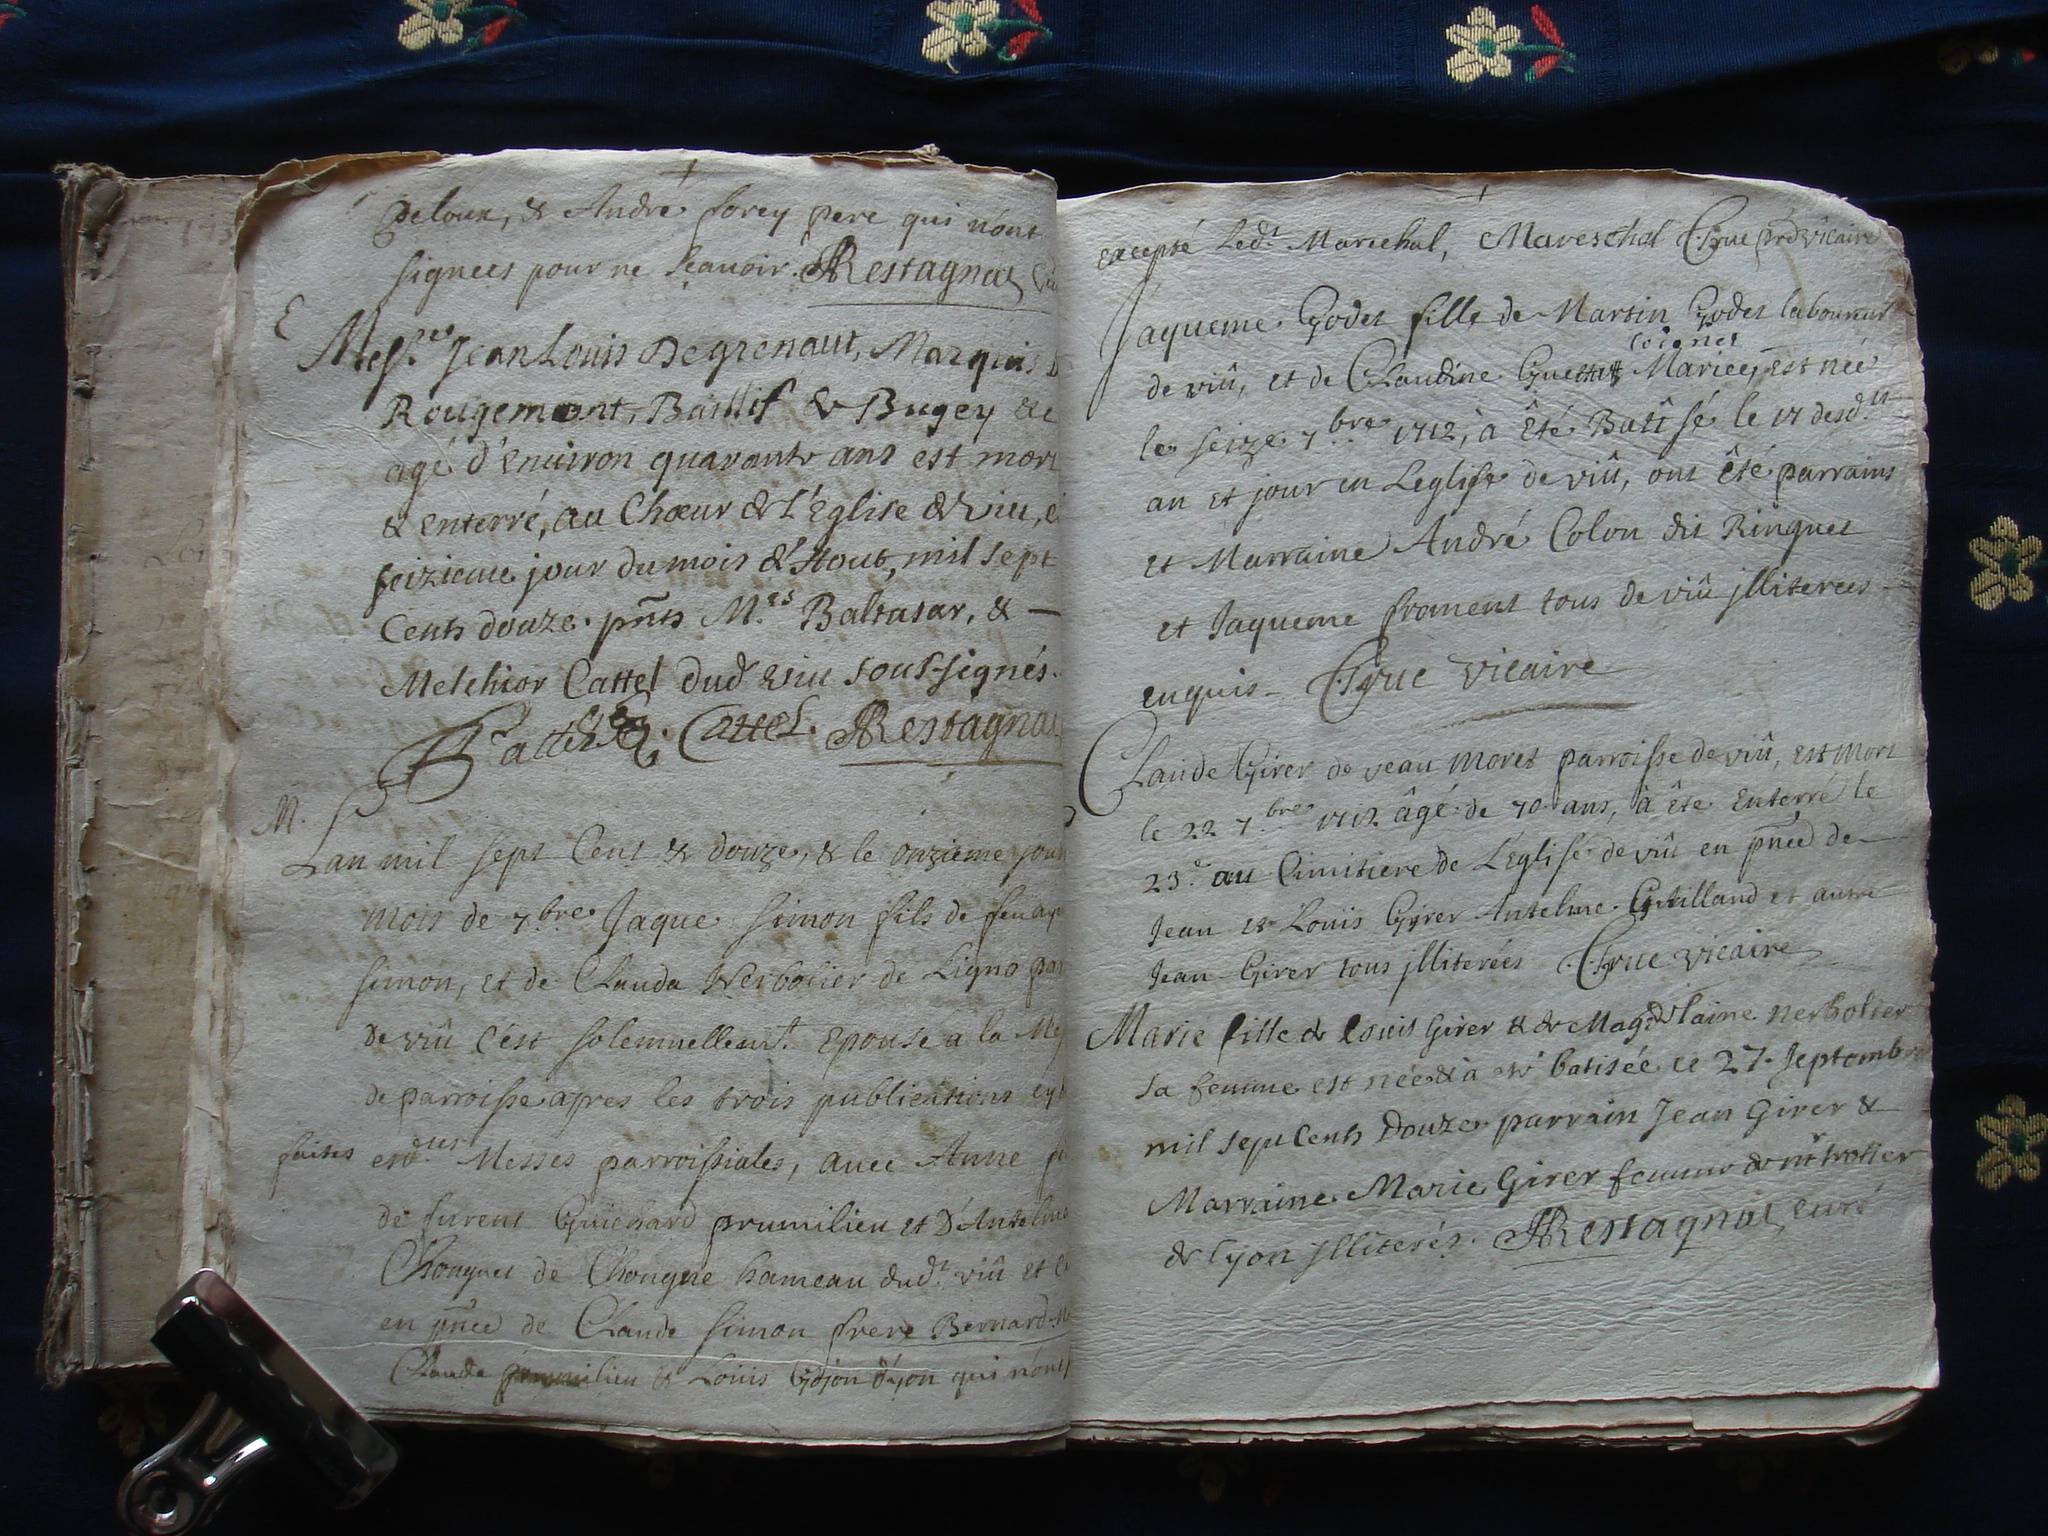 Deloux, & André forey pere qui n'ont
signees pour ne scauoir. Restagnat
E
Mess.re Jean Louis Degrenaut, Marquis D
Rougemont, Baillif & Bugey &c
agé d'Enuiron quarante ans est mort
& enterré, au Chœur & L'Eglise & viu,
seizieme jour du mois d'Aout, mil sept
Cents douze. pnts M.es Baltasar, & —
Melchior Cattel dud viu sous-signés.
Cattel. Restagnat
M.
Lan mil sept Cent & douze, & le onzieme jour
mois de 7.bre Jaque Simon fils de feu
simon, et de Clauda Nerbolier de Ligno par
de viû c'est solemnellem.t Epouse a la Me
de parroisse apres les trois publications
faites esd.tes Messes parroissiales, auec Anne
de furent Guichard prumilieu et D'Antelme
Chougnet de Chougne hameau dud.t viû et
en pnce de Claude simon frere Bernard
Claude prumilieu & Louis Gojon d'yon qui n'ont
excepté Led.t Marechal, Mareschal vicaire
Jaqueme Godet fille de Martin Godet laboureur
de viû, et de Claudine Mariee, est née
le seize 7.bre 1712, à Été Batisé le 17 desd.ts
an et jour en Leglise de viû, ont êté parrains
et Marraine André Colon dit Ringuet
et Jaqueme froment tous de viû jlliterees
enquis - vicaire
Claude Girer de veau moret parroisse de viû, est Mort
le 22 7.bre 1712 âgé de 70 ans, à Ête Enterré le
23.e au Cimitiere de L'eglise de viû en pnce de
Jean & Louis Gyrer Antelme Guilland et autre
Jean Girer tous jlliterées vicaire
Marie fille & Louis Girer & & Magdelaine nerbolier
sa femme est née & à eté batisée ce 27. septembre
mil sept Cents Douze parrain Jean Girer &
Marraine Marie Girer femme & mr trottier
& lyon jlliterés. Restagnat curé